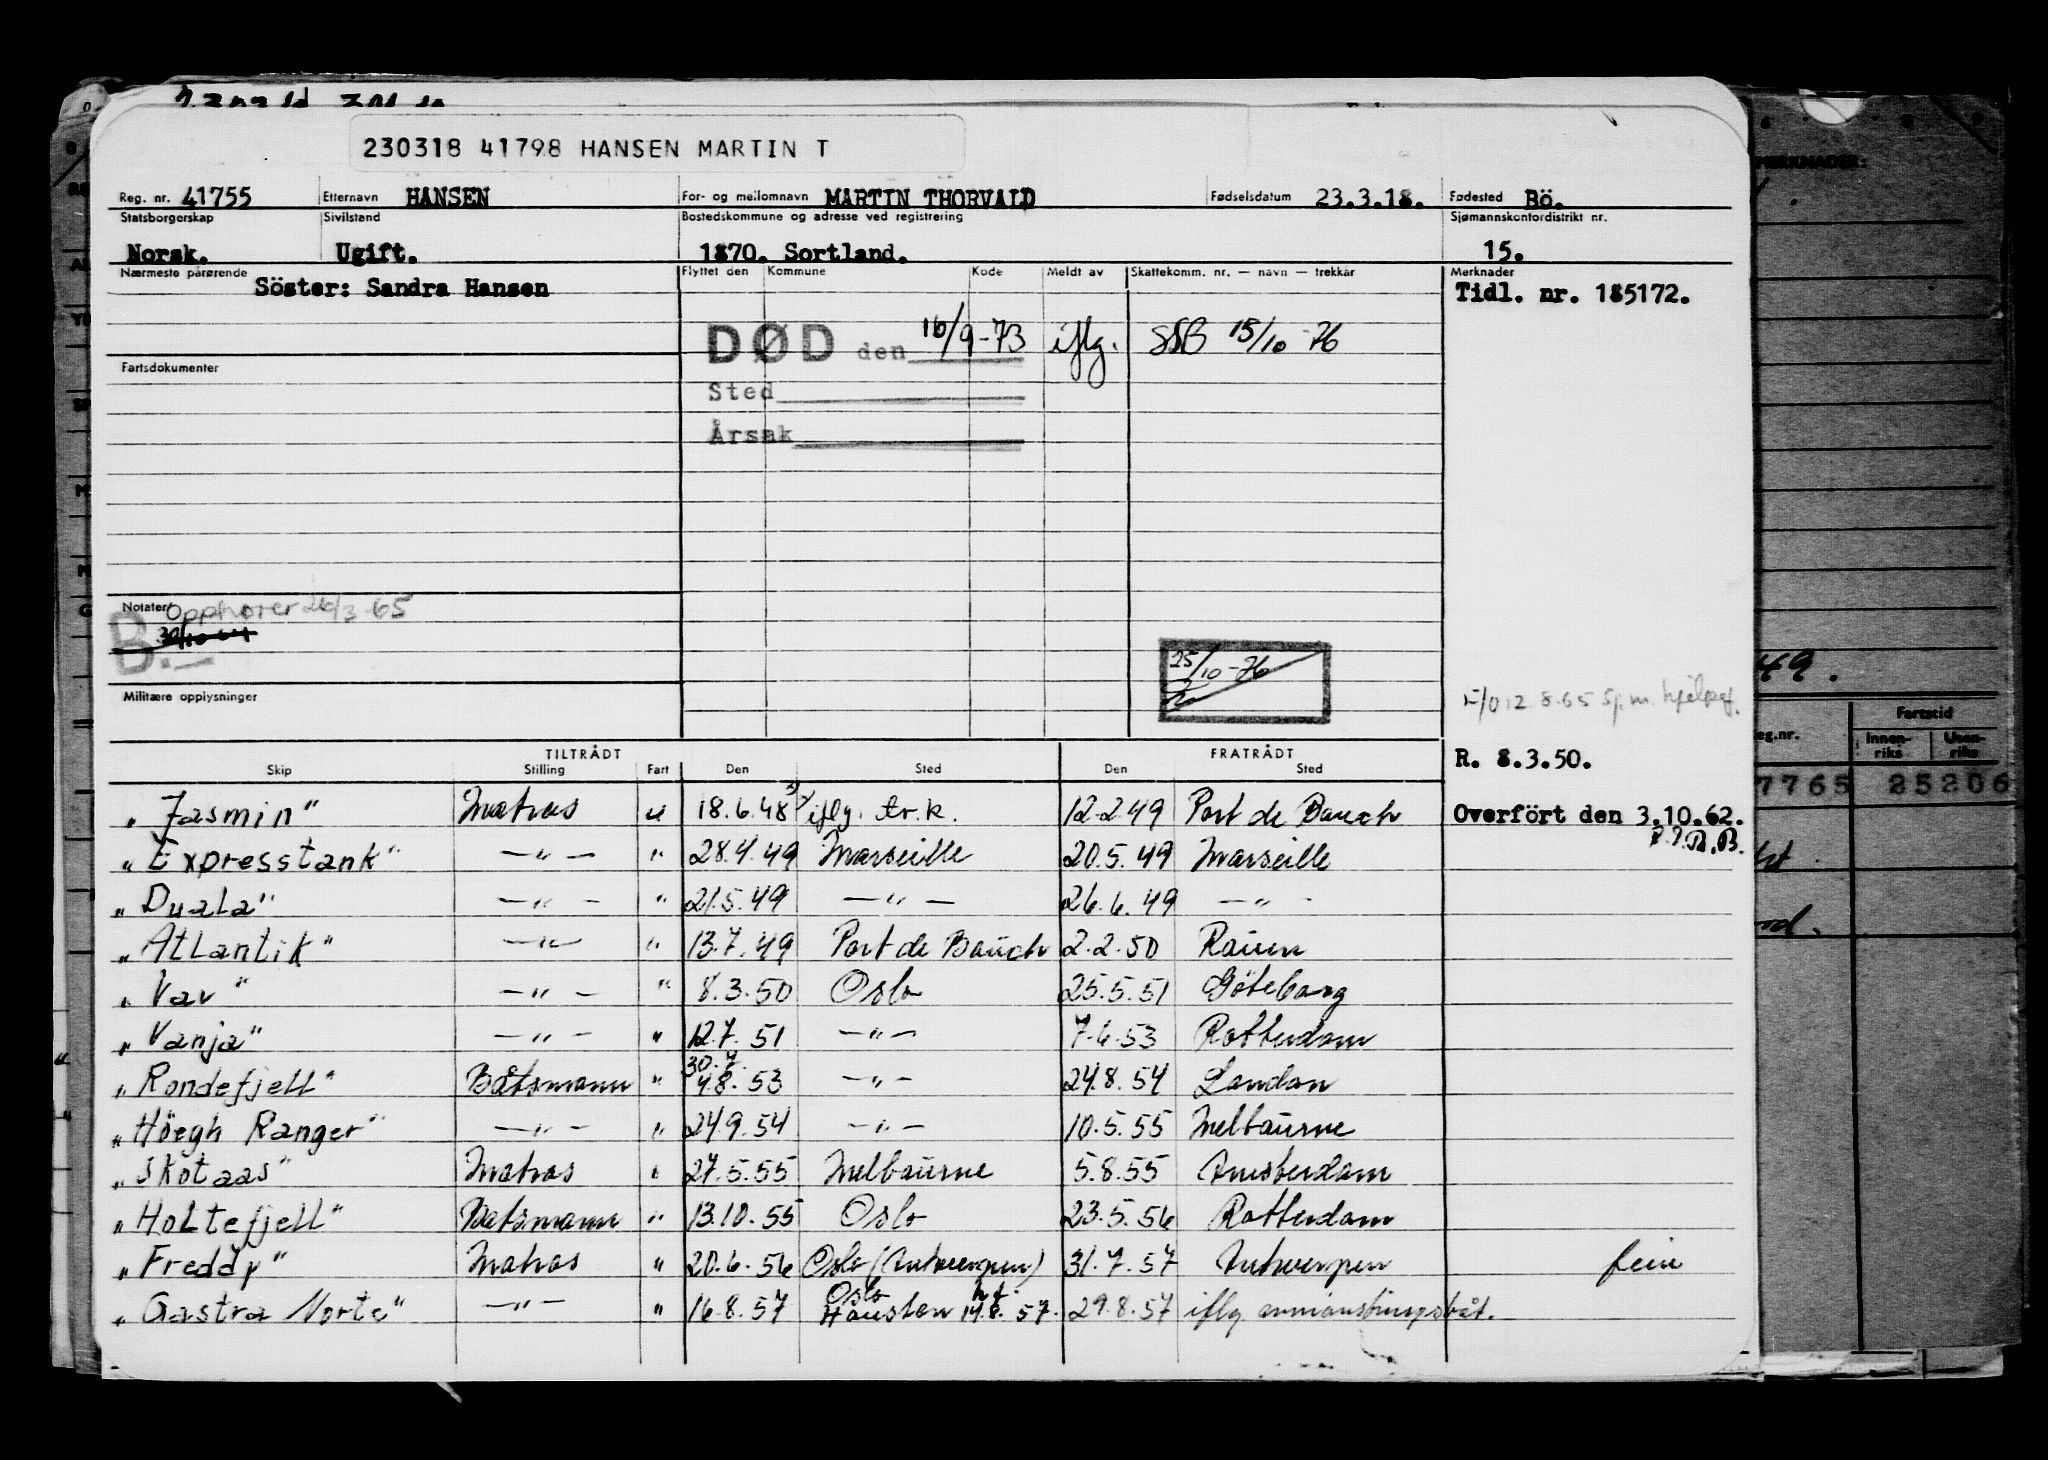 230318 41798 HANSEN MARTIN T
Reg. nr. 41755 Etternavn HANSEN For- og mellomnavn MARTIN THORVALD Fødselsdatum 23.3.18. Fødested Bö.
Statsborgerskap Sivilstand Bostedskommune og adresse ved registrering Sjømannskontordistrikt nr.
Norsk. Ugift. 1870. Sortland. 15.
Nærmeste pårørende Flyttet den Kommune Kode Meldt av Skattekomm. nr. — navn — trekkår Merknader
Söster: Sandra Hansen Tidl. nr. 185172.
DØD den 16/9-73 iflg. SSB 15/10-76
Fartsdokumenter
Sted
Årsak
Notater Opphører 26/3-65
B.
25/10-76
Militære opplysninger
12.8.65 Sj.m. hjelpef.
TILTRÅDT FRATRÅDT
R. 8.3.50.
Skip Stilling Fart Den Sted Den Sted
"Jasmin" Matros u 18.6.48 iflg. Ar.k. 12.2.49 Port de Bouch Overfört den 3.10.62.
R.B.
"Expresstank" —"— " 28.4.49 Marseille 20.5.49 Marseille
"Duala" —"— " 21.5.49 —"— 26.6.49 —"—
"Atlantik" —"— " 13.7.49 Port de Bouch 2.2.50 Rouen
"Vav" —"— " 8.3.50 Oslo 25.5.51 Göteborg
"Vanja" —"— " 12.7.51 —"— 7.6.53 Rotterdam
30.7.
"Rondefjell" Båtsmann " 4.8.53 —"— 24.8.54 London
"Höegh Ranger" —"— " 24.9.54 —"— 10.5.55 Melbourne
"Skotaas" Matros " 27.5.55 Melbourne 5.8.55 Amsterdam
"Holtefjell" Båtsmann " 13.10.55 Oslo 23.5.56 Rotterdam
"Freddy" Matros " 20.6.56 Oslo (Antwerpen) 31.7.57 Antwerpen
Oslo
"Gastra Norte" —"— " 16.8.57 Houston 14.8.57. 29.8.57 iflg. avmønstringsbåt.
MERKNADER:
49.
eg.nr. Fartstid
Innen-riks Uten-riks
7765 25206